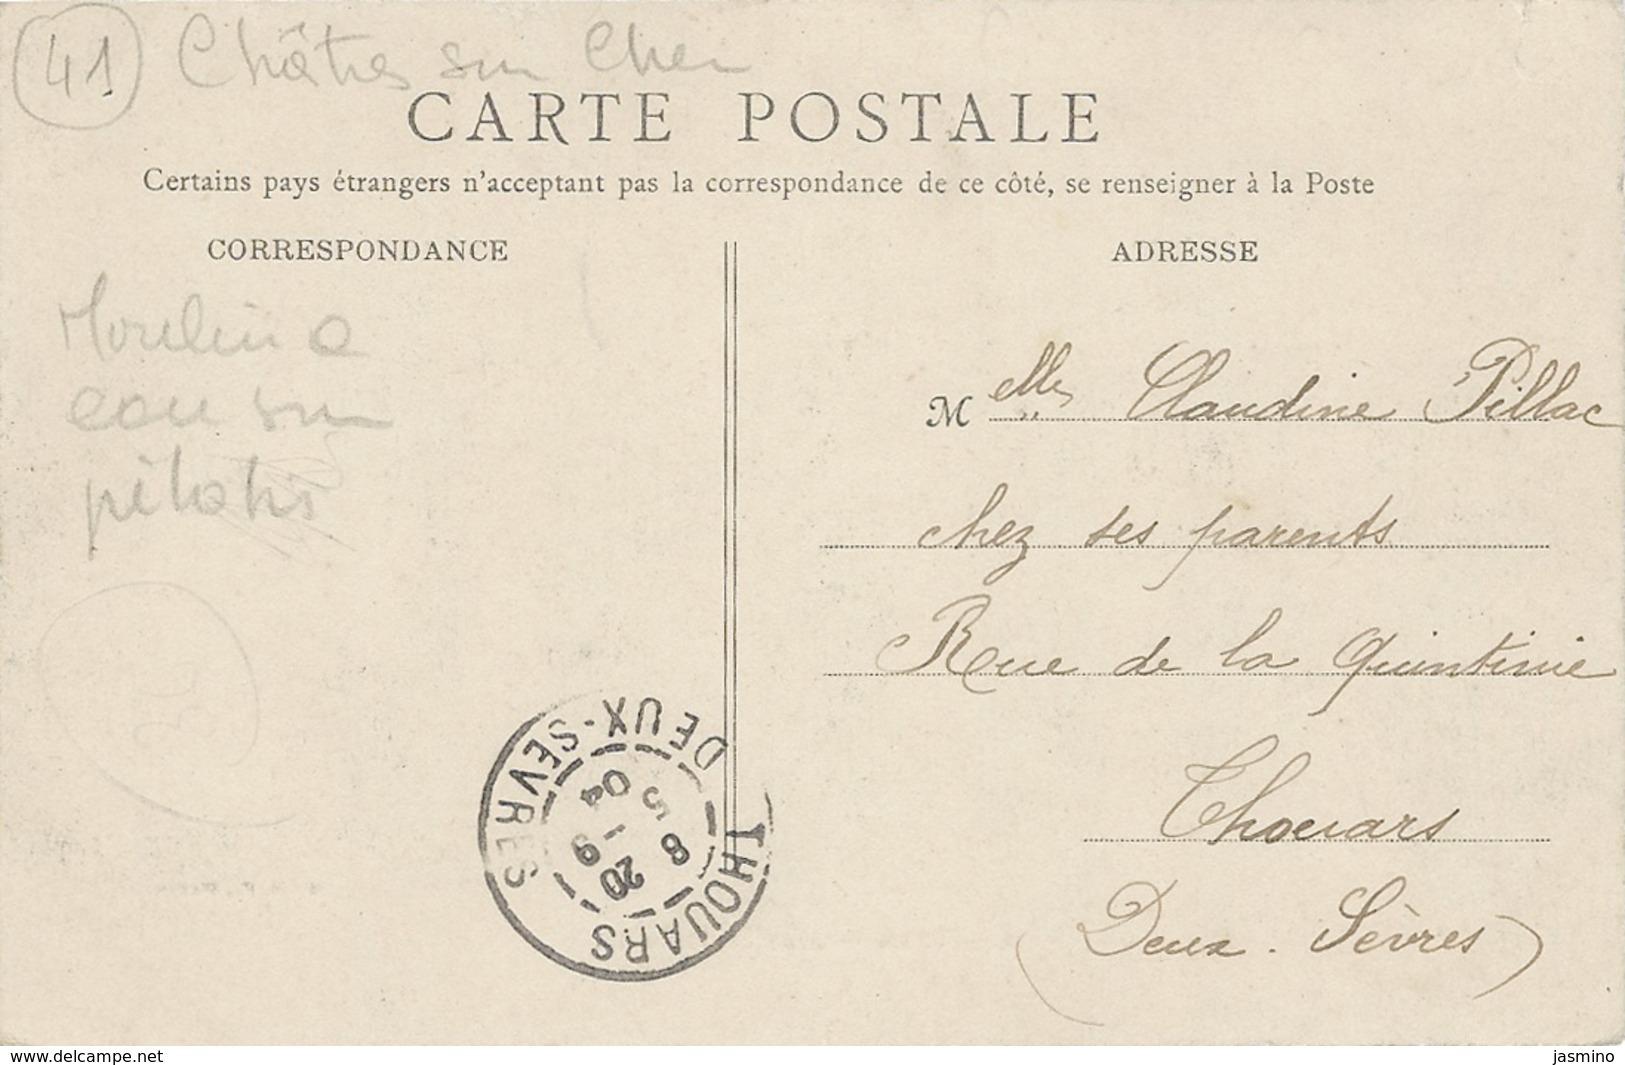 41 Châtres sur Cher
CARTE POSTALE
Certains pays étrangers n'acceptant pas la correspondance de ce côté, se renseigner à la Poste
CORRESPONDANCE
ADRESSE
Moulin a
eau sur
pilotis
Melle Claudine Pillac
chez ses parents
Rue de la Quintinie
Thouars
(Deux-Sèvres)
THOUARS
8
20 - 9
5
04
DEUX-SEVRES
www.delcampe.net
jasmino